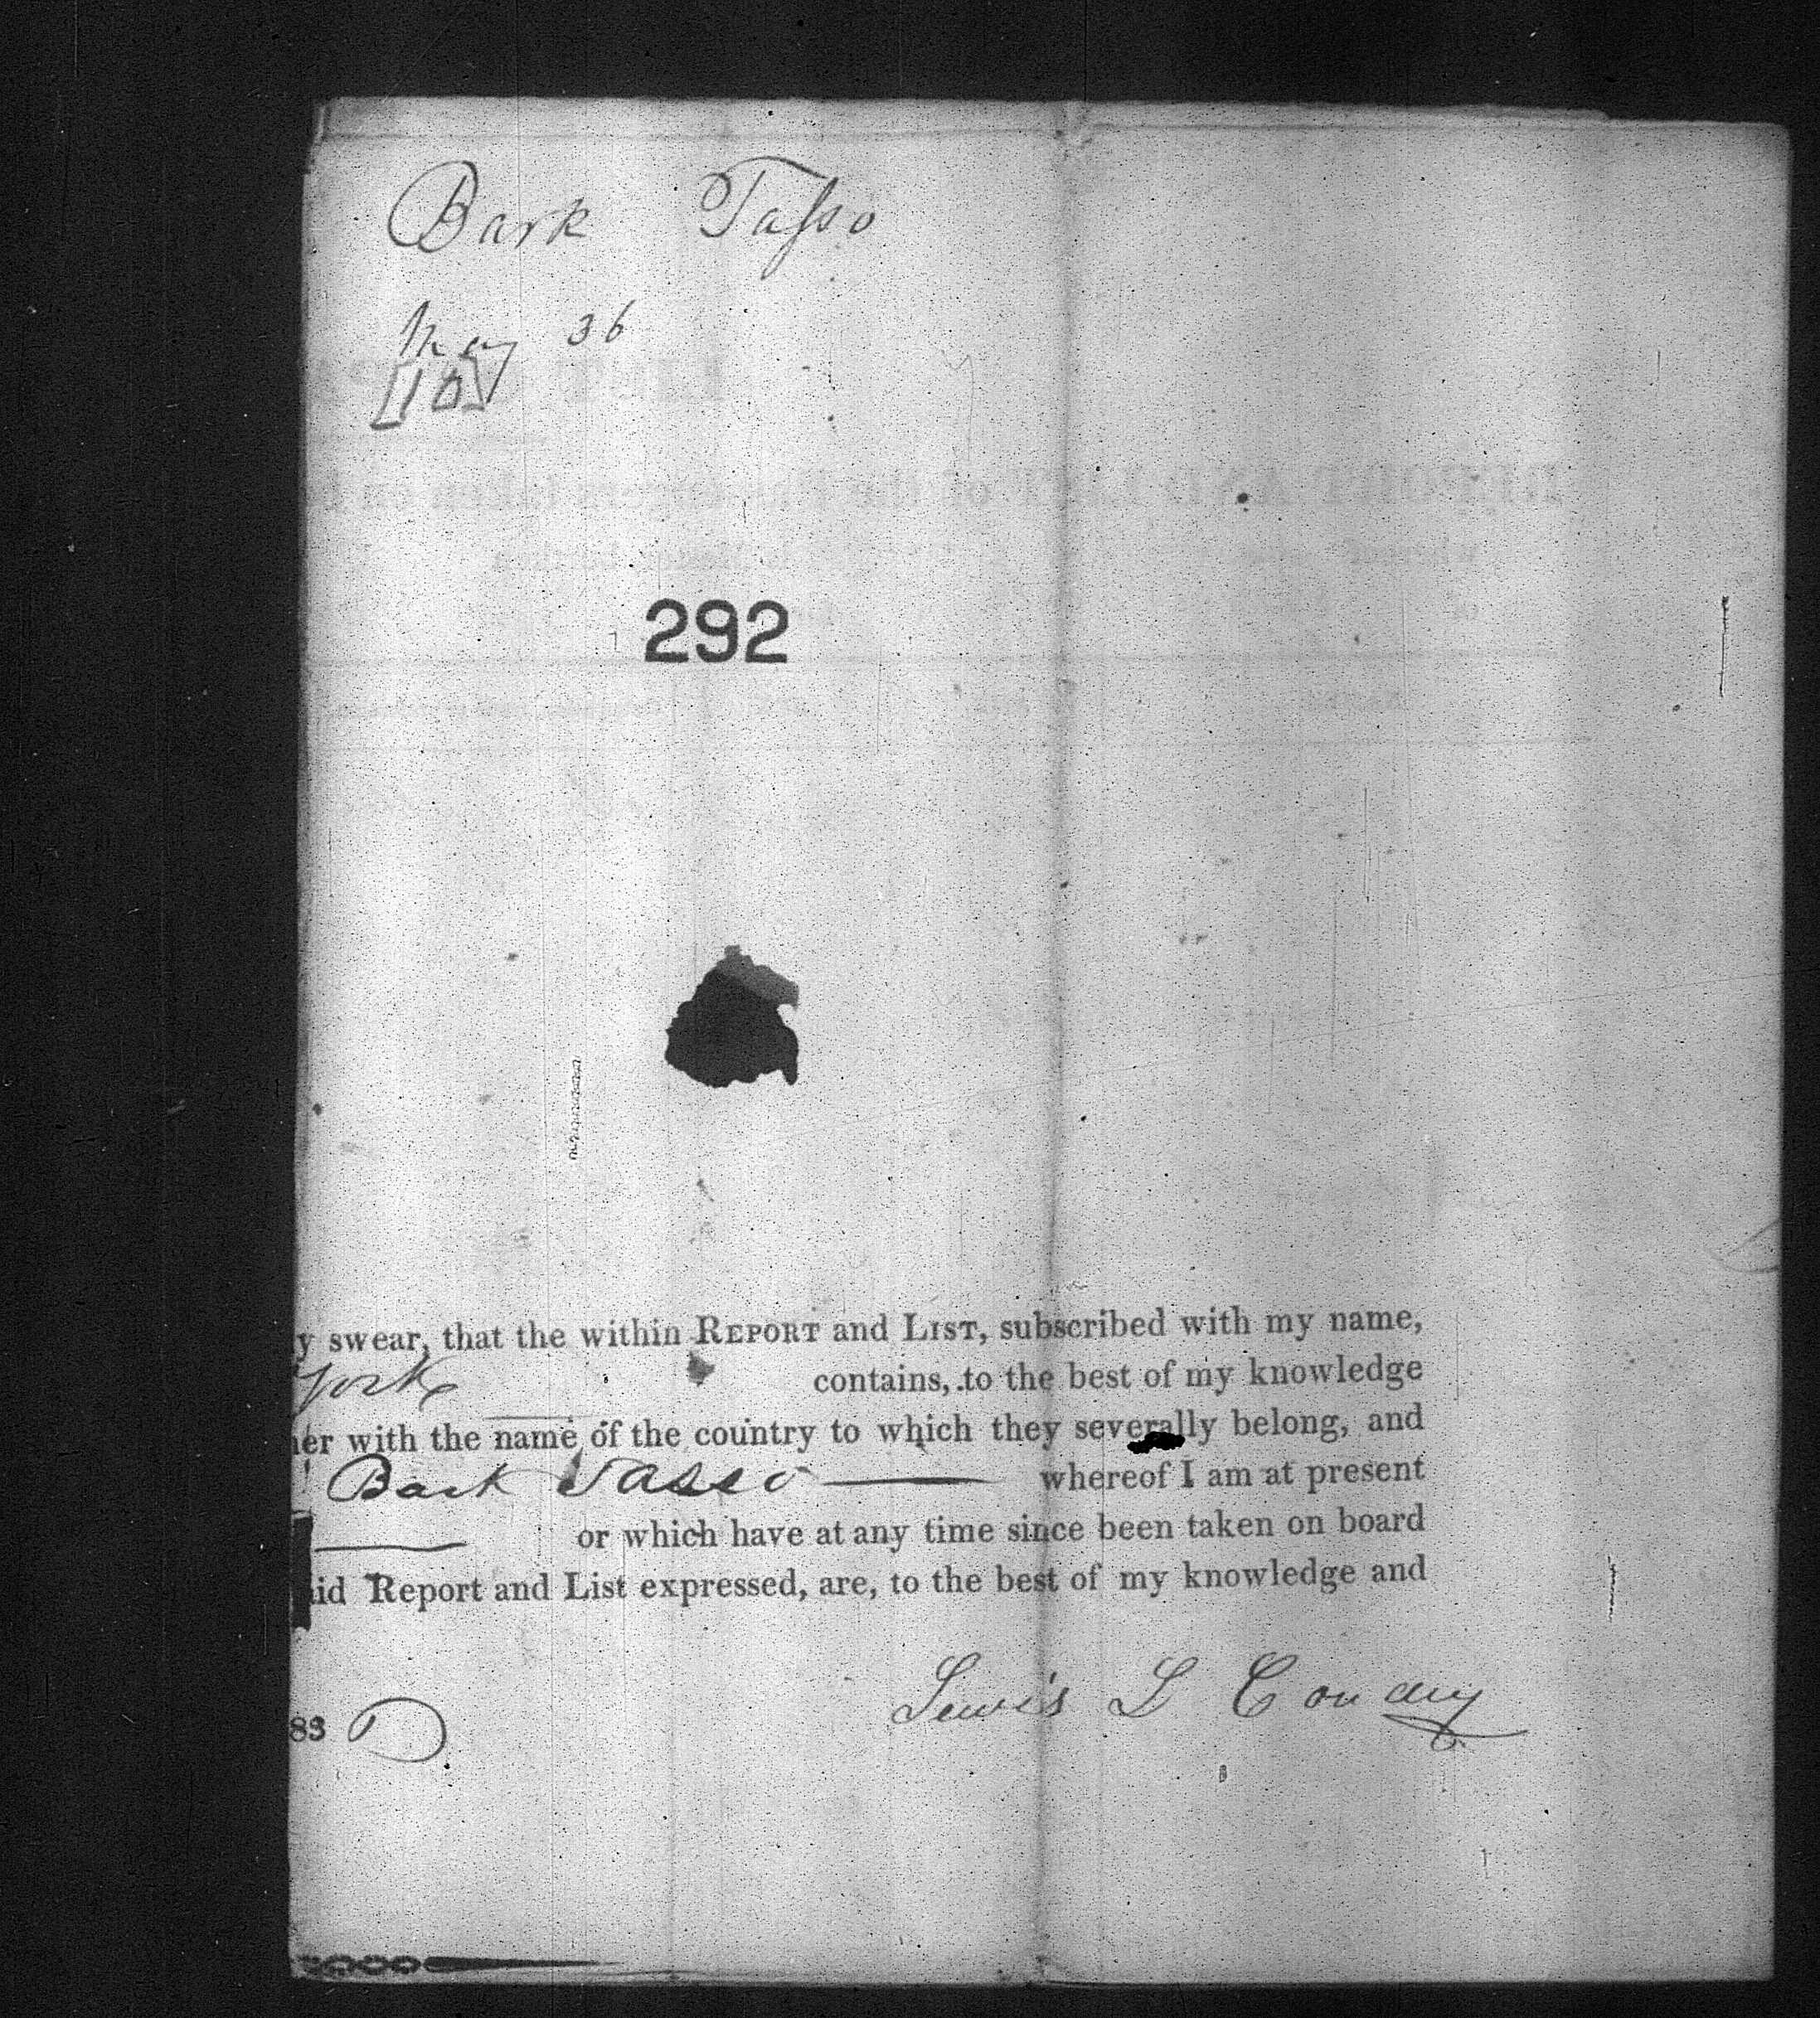 Bark Tasso
May 36
[10]
292
y swear, that the within REPORT and LIST, subscribed with my name,
York contains, to the best of my knowledge
her with the name of the country to which they severally belong, and
Bark Tasso whereof I am at present
or which have at any time since been taken on board
aid Report and List expressed, are, to the best of my knowledge and
Lewis L Conary
83